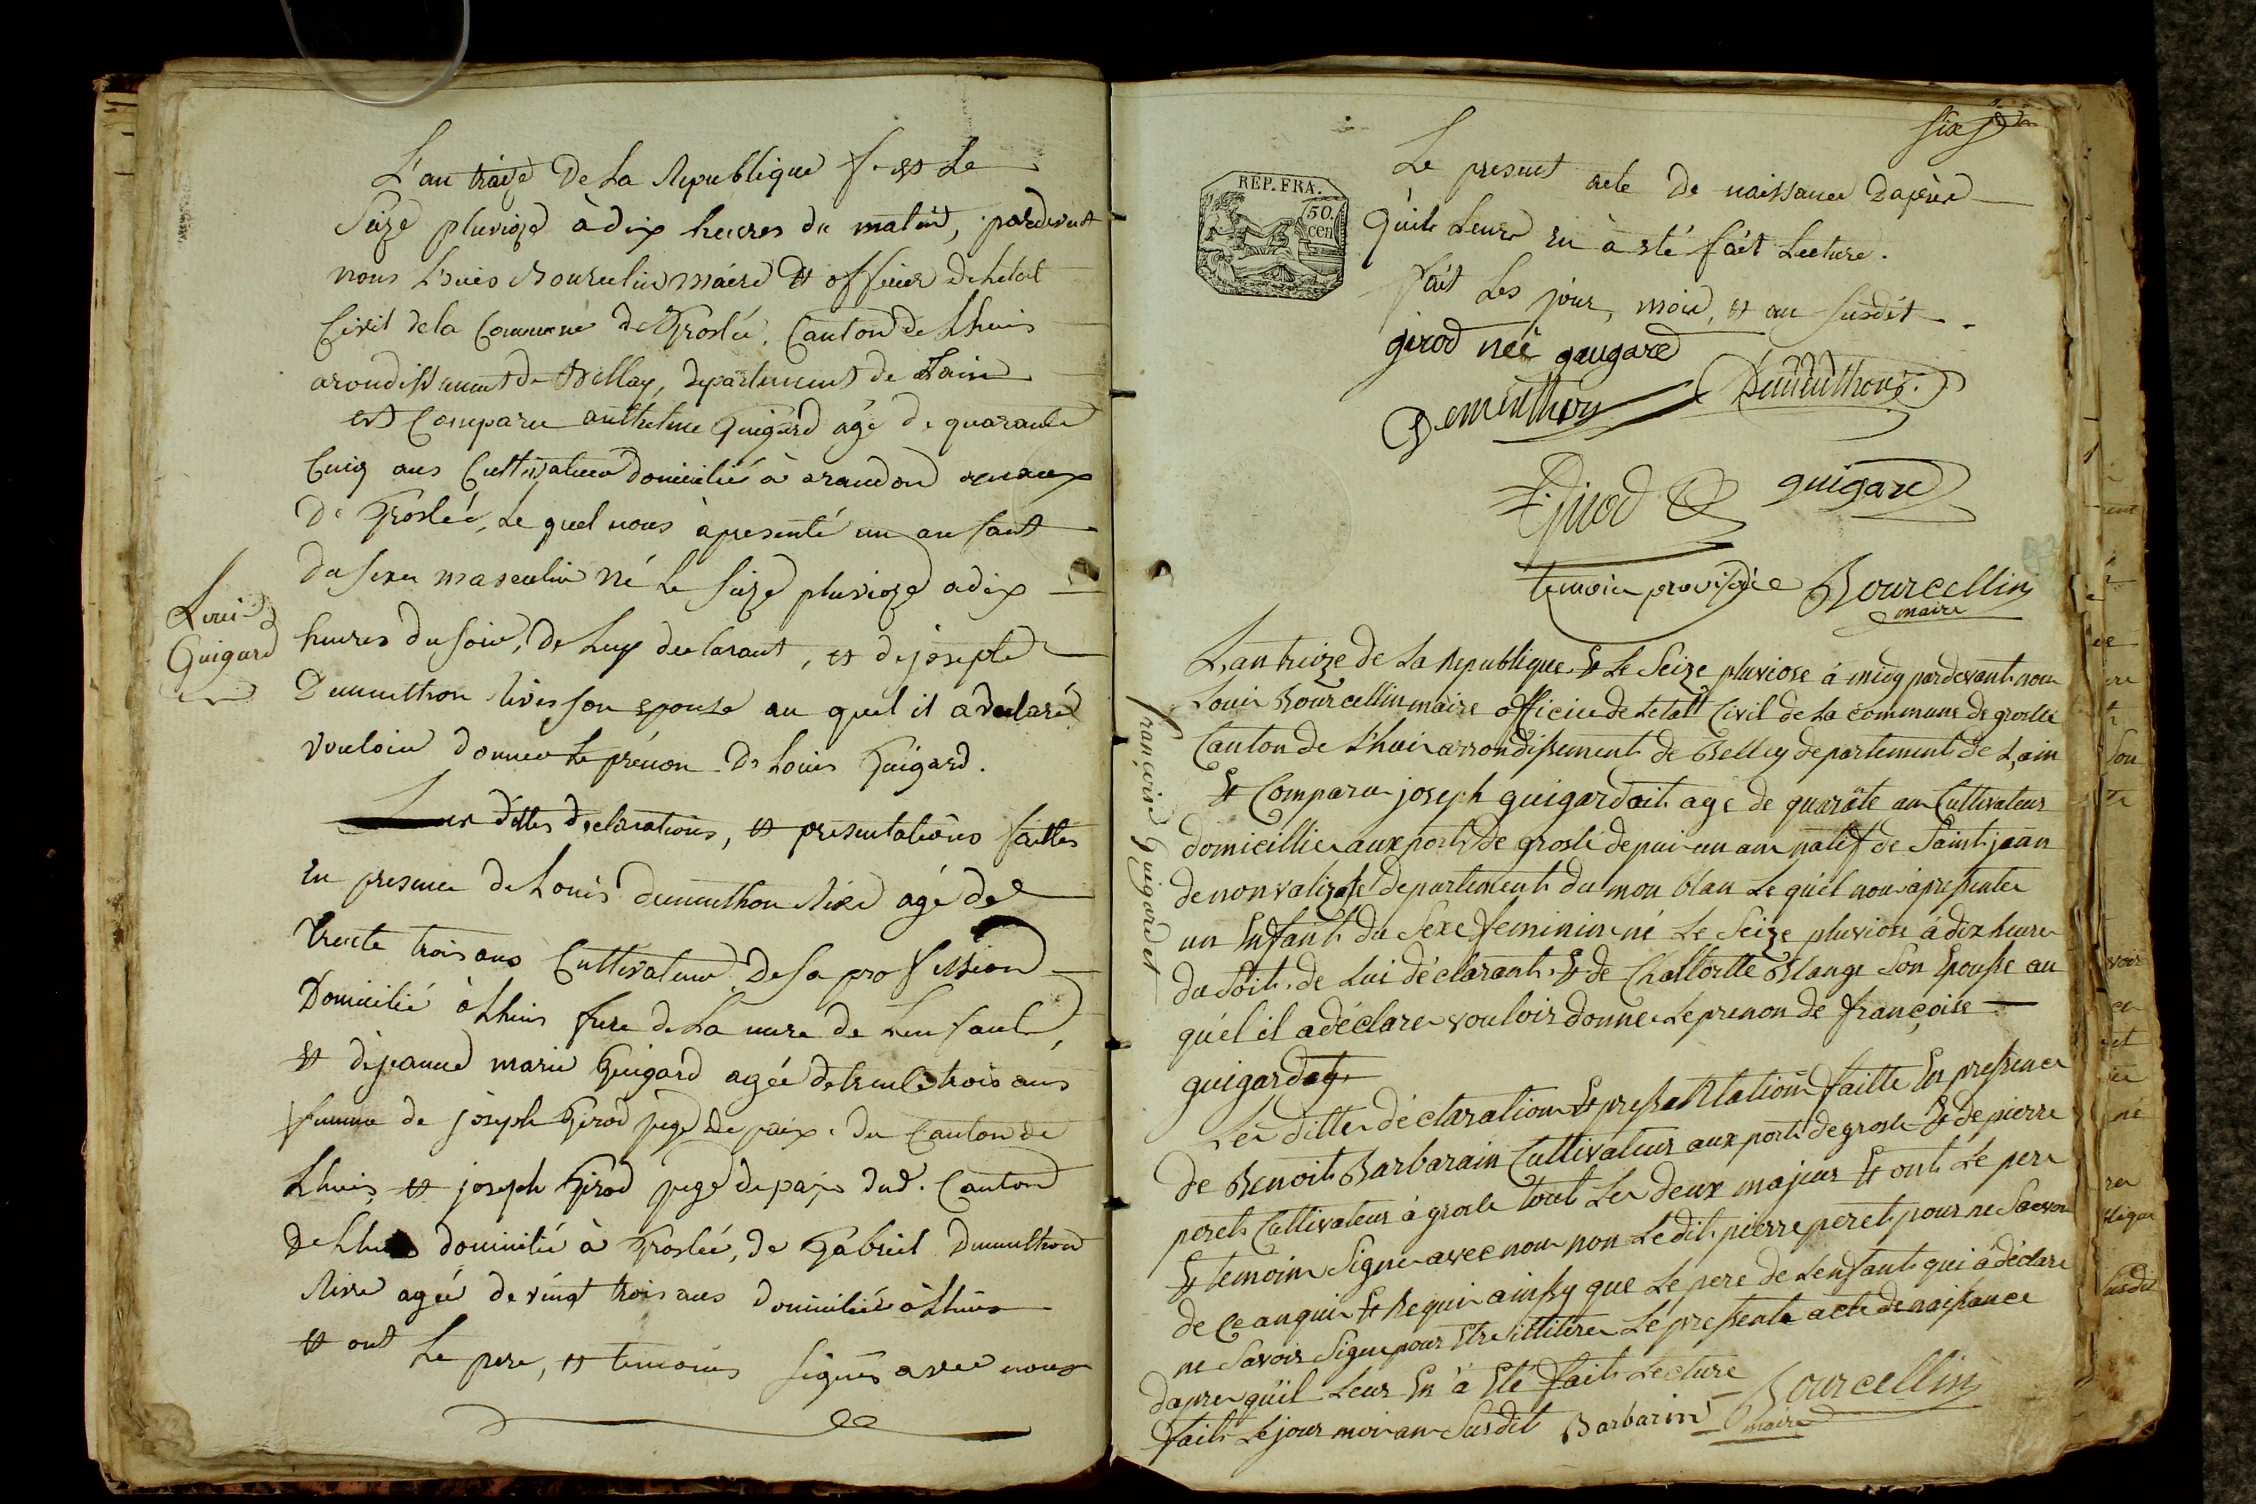 L'an traize De La Republique f. et Le
Seize pluvioze à dix heures du matin, pardevant
nous Louis Bourcelin maire et officier De Letat
Civil de la Commune de Groslée, Canton de Lhuis
arondissement de Bellay, departement de Lain
est Comparu anthelme Guigard agé de quarante
Cinq ans Cultivateur domicilié à arandon
De Groslée, Le quel nous à presenté un anfant
du sexe masculin né Le Seize pluvioze a dix
heures du soir, De Luy declarant, et de joseph
Demmthon Rive son epouse au quel il a declaré
vouloir donner Le prénon De Louis Guigard.
Louis
Guigard
Les dittes declarations, et presentations faittes
en presence de Louis demmthon Rive agé de
Trente trois ans Cultivateur De sa profession
Domicilié à Lhuis frere de La mere de Lenfant
et de jeanne marie Guigard agée de trente trois ans
femme de joseph Girod juge de paix du Canton de
Lhuis et joseph Girod juge de paix dud. Canton
de Lhuis domicilié à Groslée, de Gabriel Demmthon
Rive agée de vingt trois ans domicilié à Lhuis
et ont Le pere, et temoins signés avec nous
six
REP. FRA.
50.
cen
Le present acte de naissance Daprès
Quils Leurs en à eté fait Lecture.
fait Les jour, mois, et an susdit.
girod neé gaugard
Dementhon Dementhon
Girod guigard
temoin
Bourcellin
maire
L,an treize de La Republique Et Le Seize pluviose á midy pardevant nou
Loui Bourcellin maire officie de Letatt Civil de La commune de grosleé
Canton de Lhui arrondissement de Belley departement de L,ain
Et Comparu joseph guigardait agé de quaráte an Cultivateur
domicillie aux port de grosle depui un an natif de Saint jean
de departement du mon blan Le quel nou à presente
un Enfant du Sexe feminin né Le Seize pluviose á dix heure
du Soit. de Lui déclarant. Et de Blange Son Epouse au
quel il a déclare vouloir donne Le prenon de françoise
guigardet
françoise Guigardet
Le ditte déclaration Et pressentation faitte En pressence
de Benoit Barbarain Cultivateur aux port de grosle Et de pierre
peret Cultivateur á grosle tout Le deux majeur Et ont Le pere
Et temoin Signe avec nou non Le dit pierre peret pour ne Savoir
de Ce anqui Et Requi ainssy que Le pere de Lenfant qui a déclare
ne Savoir Signe pour Etre illitere Le pressente acte de naissance
dapre quil Leur En á Eté fait Lecture
fait Le jour moi an Susdit Barbarin Bourcellin
maire